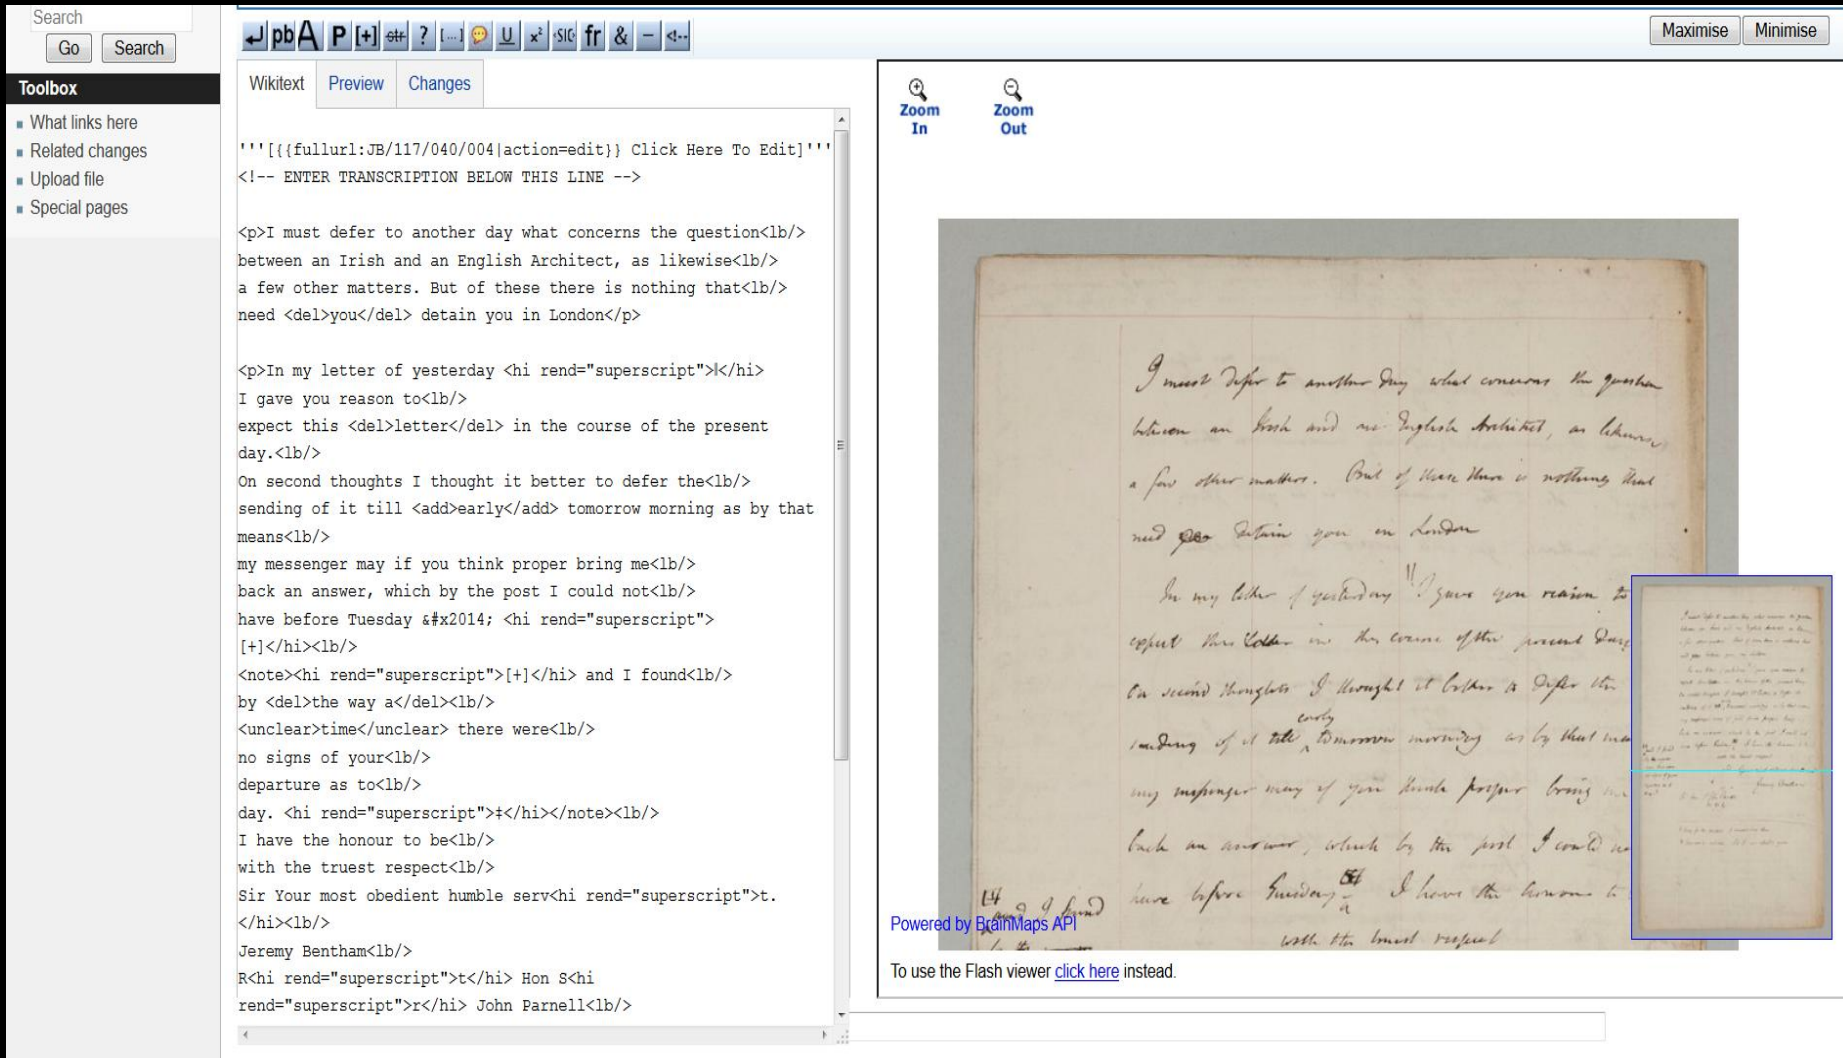 Search
Go Search
Toolbox
What links here
Related changes
Upload file
Special pages
pb A P [+] str ? [...] U x² ‹SIC› fr & – <!--
Maximise Minimise
Wikitext Preview Changes
'''[{{fullurl:JB/117/040/004|action=edit}} Click Here To Edit]'''
<!-- ENTER TRANSCRIPTION BELOW THIS LINE -->
<p>I must defer to another day what concerns the question<lb/>
between an Irish and an English Architect, as likewise<lb/>
a few other matters. But of these there is nothing that<lb/>
need <del>you</del> detain you in London</p>
<p>In my letter of yesterday <hi rend="superscript">‖</hi>
I gave you reason to<lb/>
expect this <del>letter</del> in the course of the present
day.<lb/>
On second thoughts I thought it better to defer the<lb/>
sending of it till <add>early</add> tomorrow morning as by that
means<lb/>
my messenger may if you think proper bring me<lb/>
back an answer, which by the post I could not<lb/>
have before Tuesday &#x2014; <hi rend="superscript">
[+]</hi><lb/>
<note><hi rend="superscript">[+]</hi> and I found<lb/>
by <del>the way a</del><lb/>
<unclear>time</unclear> there were<lb/>
no signs of your<lb/>
departure as to<lb/>
day. <hi rend="superscript">‡</hi></note><lb/>
I have the honour to be<lb/>
with the truest respect<lb/>
Sir Your most obedient humble serv<hi rend="superscript">t.
</hi><lb/>
Jeremy Bentham<lb/>
R<hi rend="superscript">t</hi> Hon S<hi
rend="superscript">r</hi> John Parnell<lb/>
Zoom In
Zoom Out
I must defer to another day what concerns the question
between an Irish and an English Architect, as likewise
a few other matters. But of these there is nothing that
need detain you in London
In my letter of yesterday || I gave you reason to
expect this letter in the course of the present day
On second thoughts I thought it better to defer the
early
sending of it till tomorrow morning as by that
my messenger may if you think proper bring
back an answer, which by the post I could
have before Tuesday I have the honour to
and I found
with the truest respect
Powered by BrainMaps API
To use the Flash viewer click here instead.